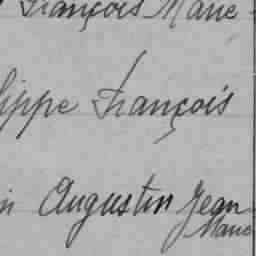 François Marie
lippe François
in Augustin Jean
Marie